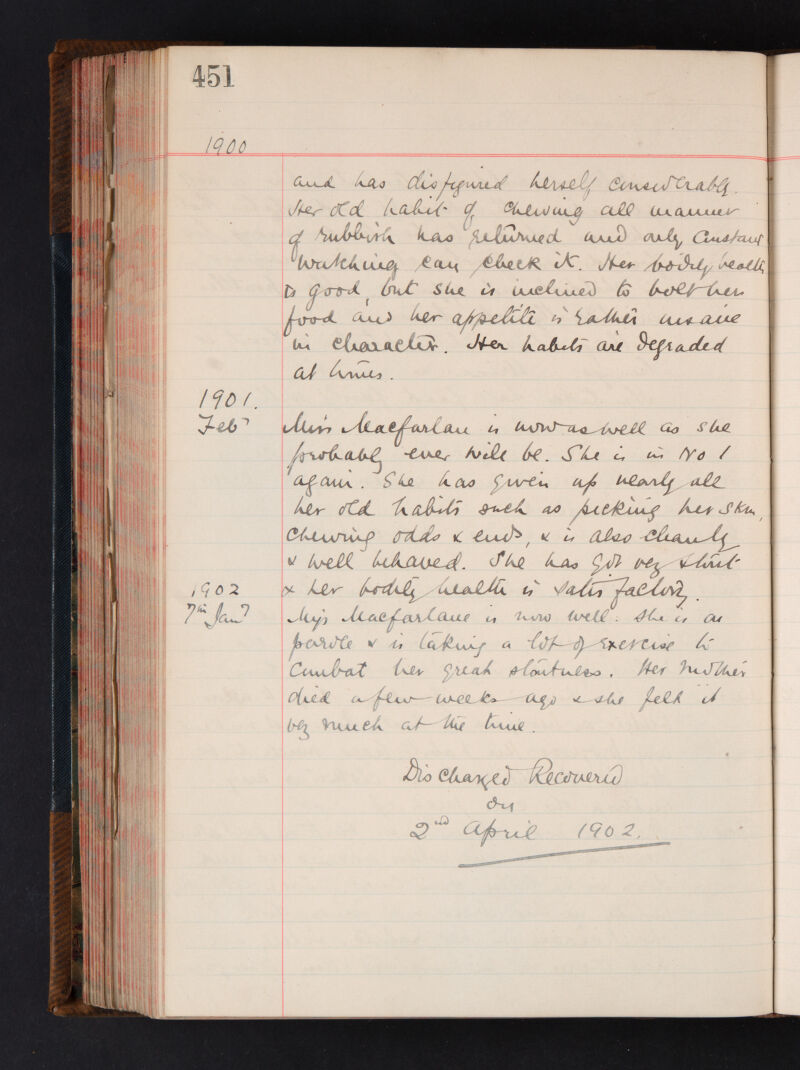 451
1900
and has disfigured herself considerably.
Her old habit of chewing all manner
of rubbish has returned and only constant
watching can check it. Her bodily health
is good, but she is inclined to bolt her
food and her appetite is rather insane
in character. Her habits are degraded
at times.
1901.
Feby Miss Macfarlane is now as well as she
probably ever will be. She is in No 1
again. She has given up nearly all
her old habits such as picking her skin,
chewing odds & ends, & is also cleanly
& well behaved. She has got very stout
1902 & her bodily health is satisfactory.
7th Jany Miss Macfarlane is now well. She is on
parole & is taking a lot of exercise to
combat her great stoutness. Her mother
died a few weeks ago & she felt it
very much at the time.
Discharged Recovered
on
2nd April 1902.